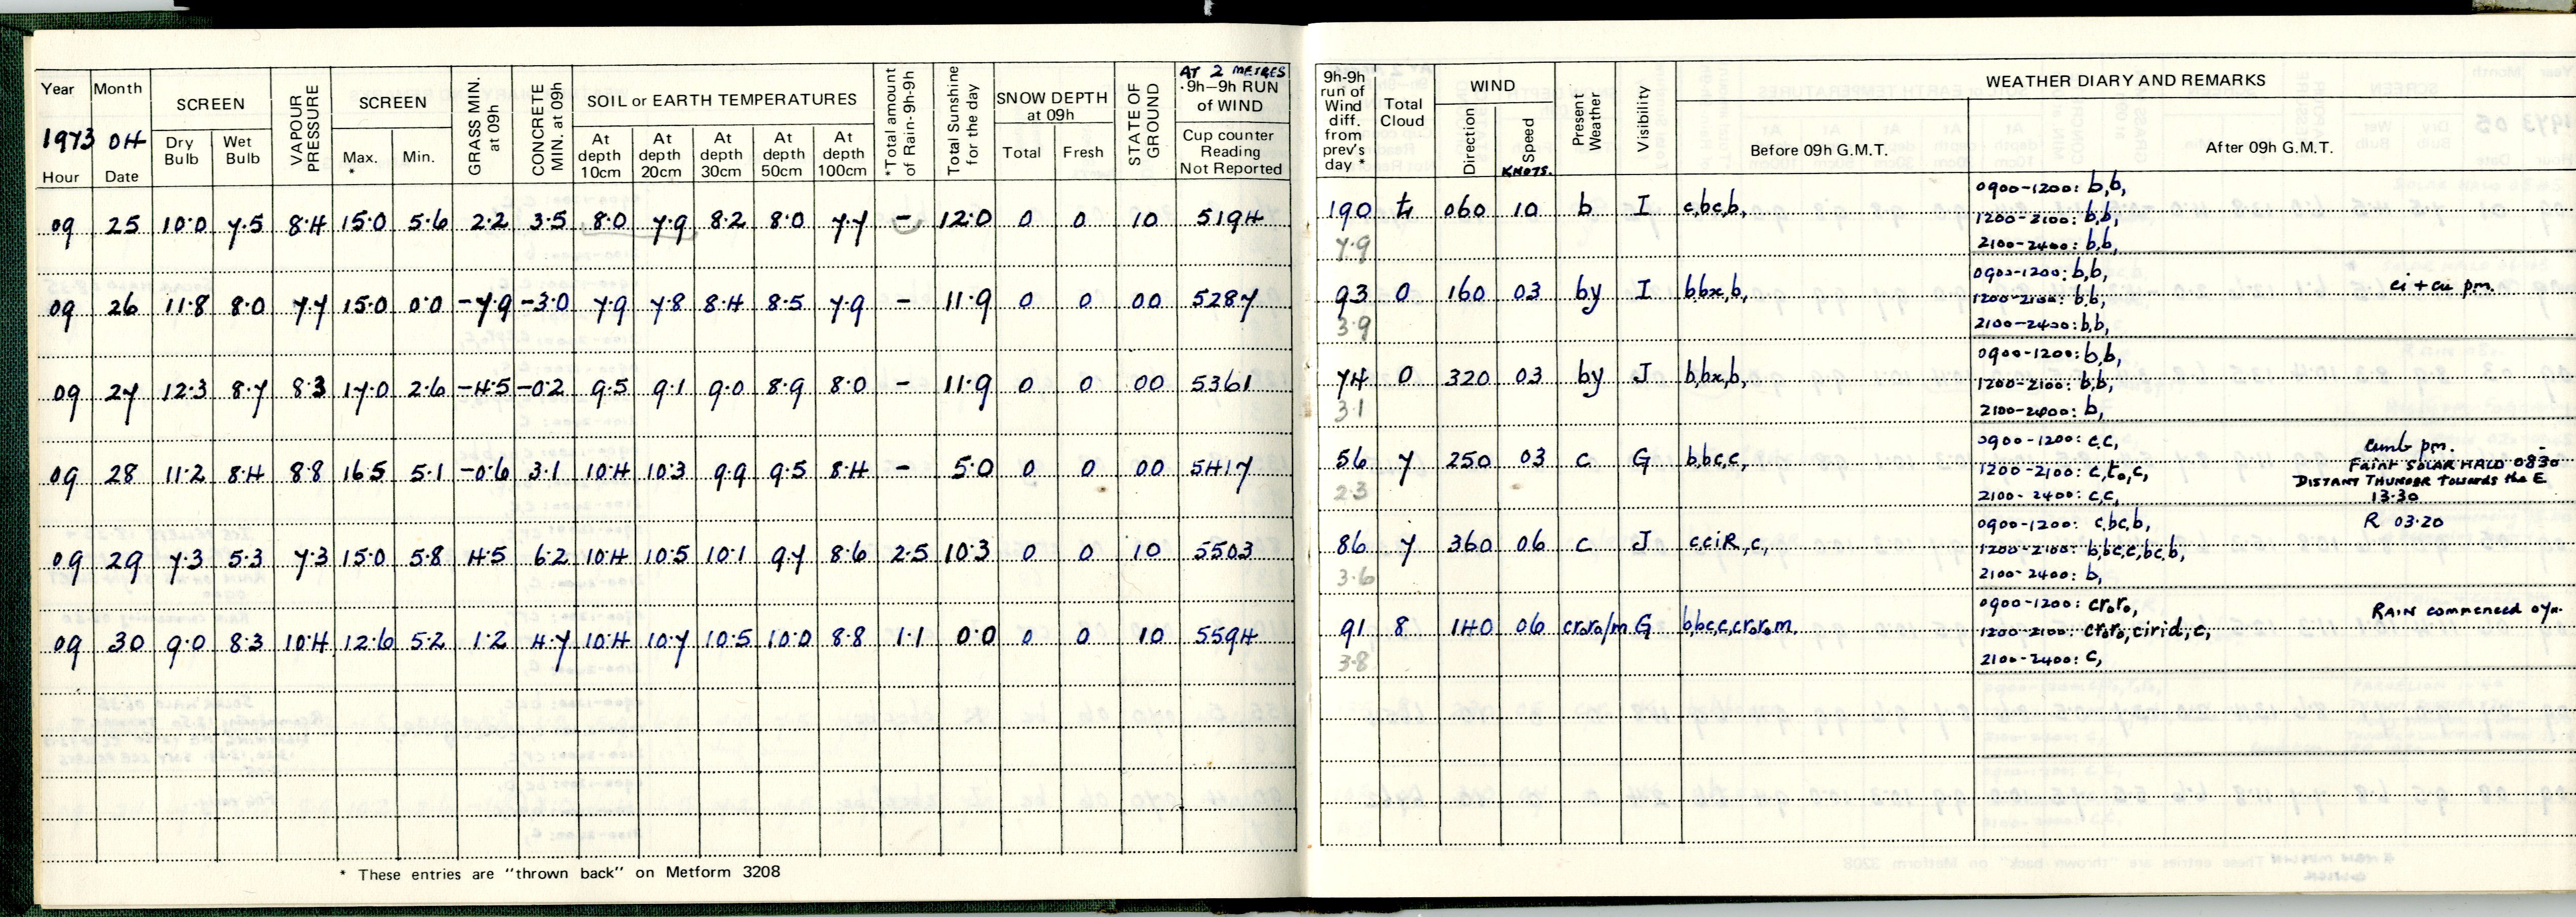 Year Month SCREEN VAPOUR PRESSURE SCREEN GRASS MIN. at 09h CONCRETE MIN. at 09h SOIL or EARTH TEMPERATURES *Total amount of Rain-9h-9h Total Sunshine for the day SNOW DEPTH at 09h STATE OF GROUND AT 2 METRES 9h-9h RUN of WIND
1973 04 Dry Bulb Wet Bulb Max. * Min. At depth 10cm At depth 20cm At depth 30cm At depth 50cm At depth 100cm Total Fresh Cup counter Reading Not Reported
Hour Date
09 25 10.0 7.5 8.4 15.0 5.6 2.2 3.5 8.0 7.9 8.2 8.0 7.7 - 12.0 0 0 10 5194
09 26 11.8 8.0 7.7 15.0 0.0 -7.9 -3.0 7.9 7.8 8.4 8.5 7.9 - 11.9 0 0 00 5287
09 27 12.3 8.7 8.3 17.0 2.6 -4.5 -0.2 9.5 9.1 9.0 8.9 8.0 - 11.9 0 0 00 5361
09 28 11.2 8.4 8.8 16.5 5.1 -0.6 3.1 10.4 10.3 9.9 9.5 8.4 - 5.0 0 0 00 5417
09 29 7.3 5.3 7.3 15.0 5.8 4.5 6.2 10.4 10.5 10.1 9.7 8.6 2.5 10.3 0 0 10 5503
09 30 9.0 8.3 10.4 12.6 5.2 1.2 4.7 10.4 10.7 10.5 10.0 8.8 1.1 0.0 0 0 10 5594
* These entries are "thrown back" on Metform 3208
9h-9h run of Wind diff. from prev's day * Total Cloud WIND Present Weather Visibility WEATHER DIARY AND REMARKS
Direction Speed KNOTS. Before 09h G.M.T. After 09h G.M.T.
190 060 10 b I c,bc,b, 0900-1200: b,b,
7.9 1200-2100: b,b,
2100-2400: b,b,
93 0 160 03 by I b,bx,b, 0900-1200: b,b, ci + cu pm.
3.9 1200-2100: b,b,
2100-2400: b,b,
74 0 320 03 by J b,bx,b, 0900-1200: b,b,
3.1 1200-2100: b,b,
2100-2400: b,
56 7 250 03 c G b,bc,c, 0900-1200: c,c, cumb pm.
2.3 1200-2100: c,to,c, Faint SOLAR HALO 0830
DISTANT THUNDER TOWARDS the E
2100-2400: c,c, 13.30
86 7 360 06 c J c,ciR,c, 0900-1200: c,bc,b, R 03.20
3.6 1200-2100: b,bc,c,bc,b,
2100-2400: b,
91 8 140 06 croro/m G b,bc,c,croro,m. 0900-1200: croro, RAIN commenced 07
3.8 1200-2100: croro,cirid,c,
2100-2400: c,